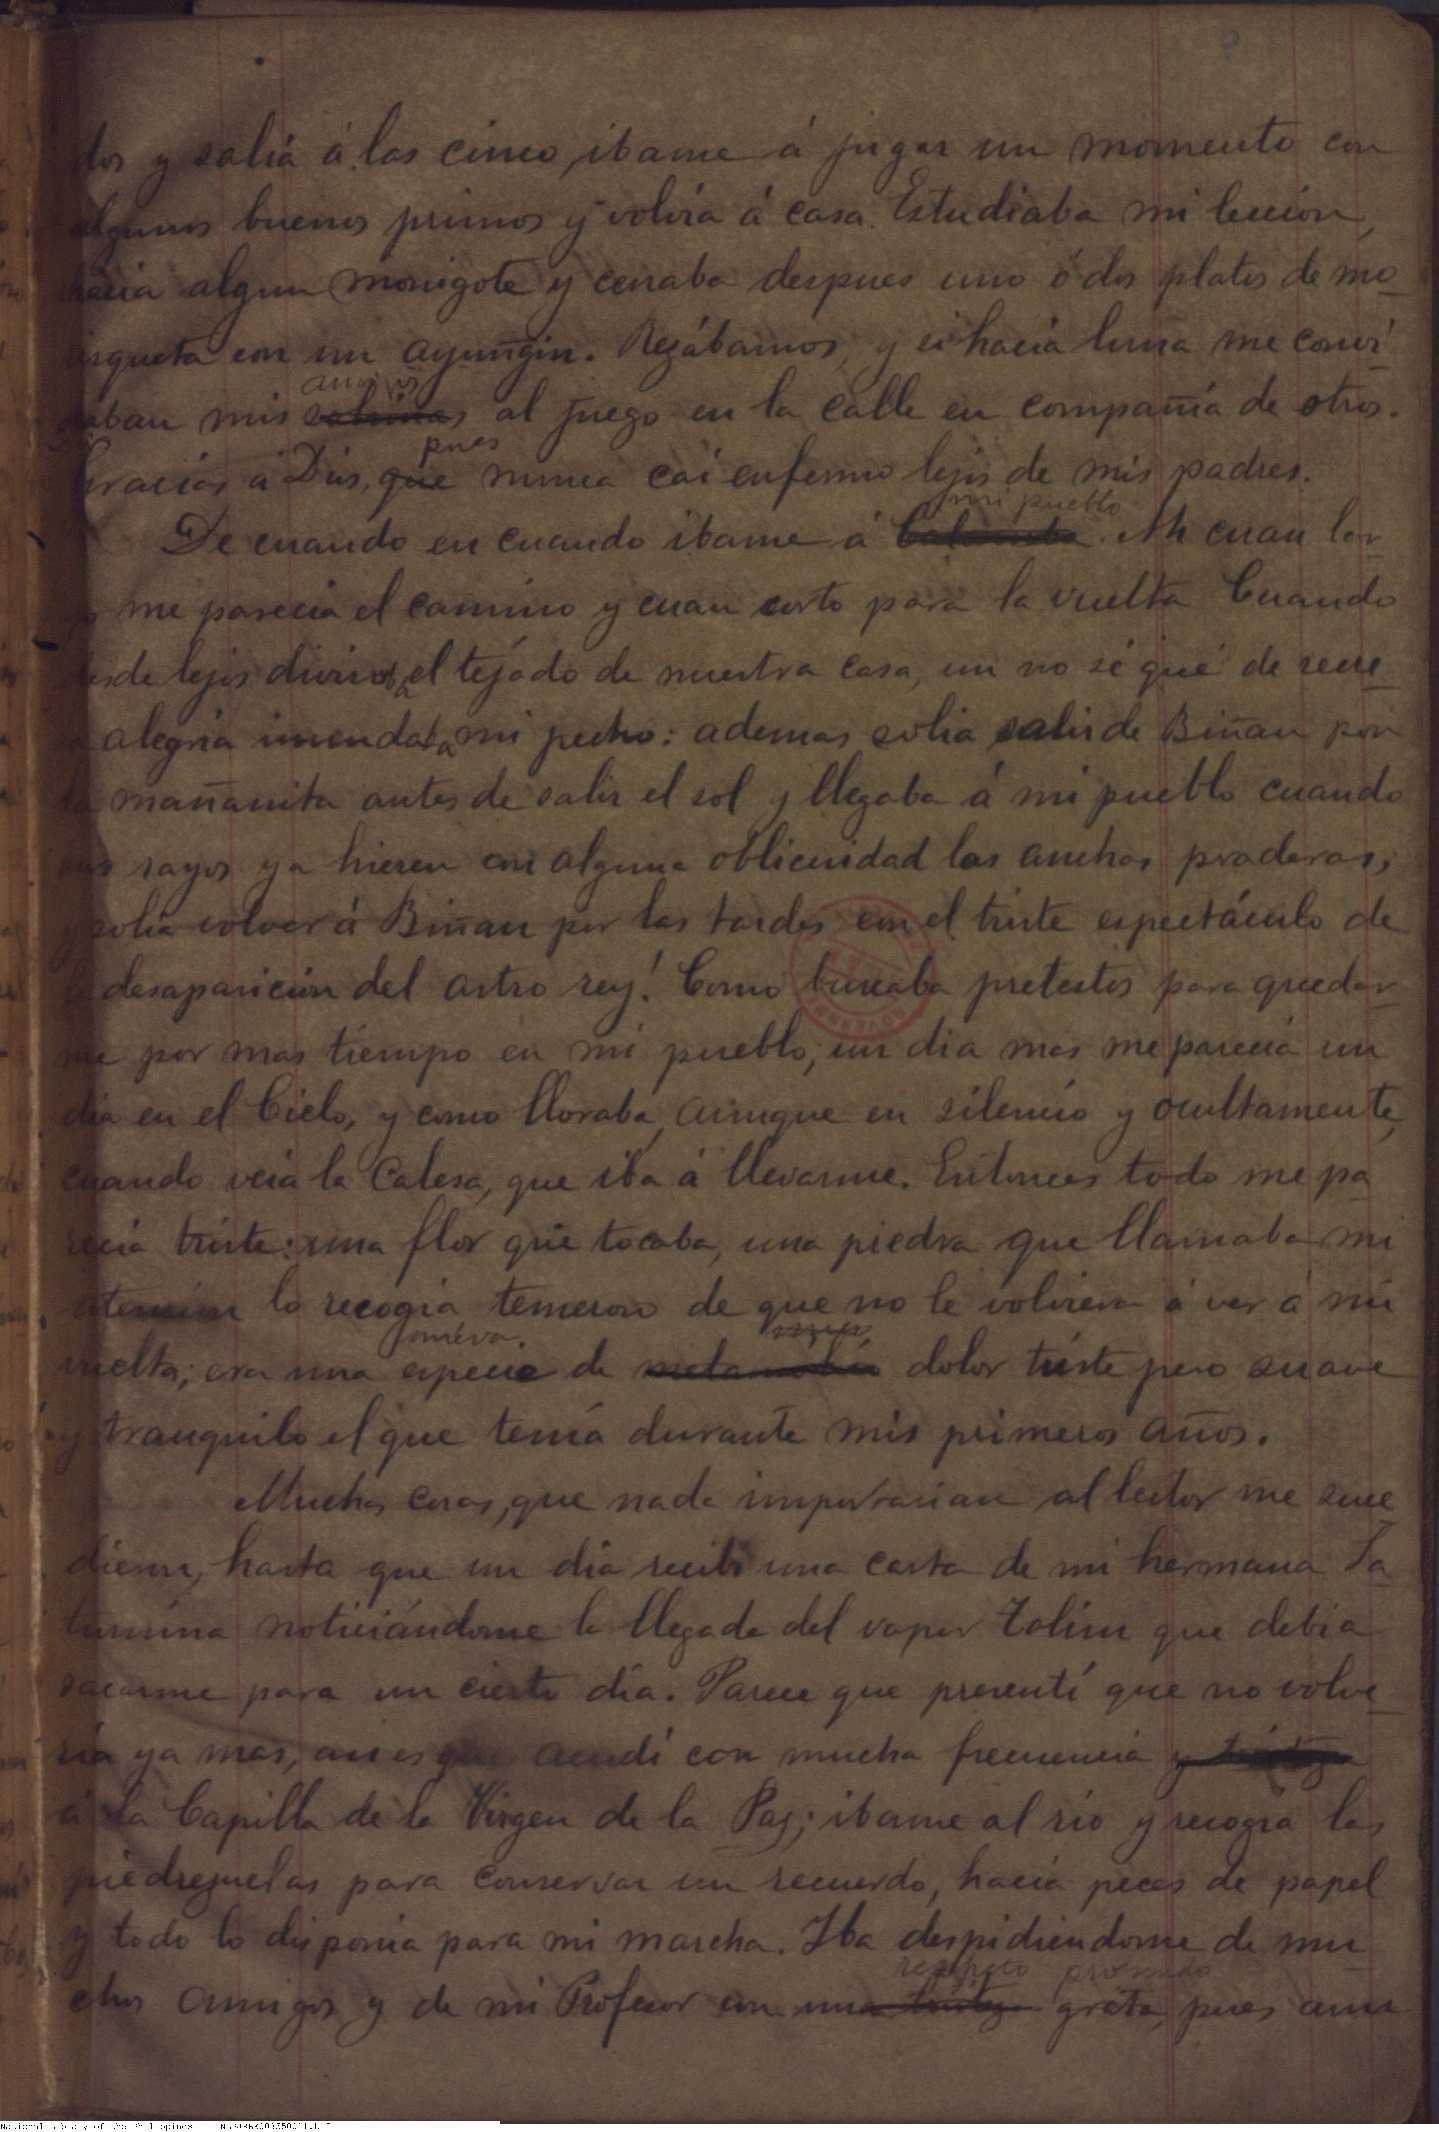 dos y salia á las cinco, ibame á jugar un momento con
algunos buenos primos y volvia á casa. Estudiaba mi leccion,
hacia algun monigote y cenaba despues uno ó dos platos de mo-
risqueta con un ayuñgin. Rezábamos, y si hacia luna me convi-
daban mis sobrinas al juego en la calle en compañía de otros.
amigos
Gracias á Dios, que nunca caí enfermo lejos de mis padres.
pues
De cuando en cuando ibame á Calamba. Ah cuan lar-
mi pueblo
go me parecia el camino y cuan corto para la vuelta Cuando
desde lejos divisaba el tejado de nuestra casa, un no sé qué de secre-
ta alegria inundaba mi pecho: ademas solia salir de Biñan por
la mañanita antes de salir el sol y llegaba á mi pueblo cuando
sus rayos ya hieren con alguna oblicuidad las anchas praderas;
y solia volver á Biñan por las tardes con el triste espectáculo de
la desaparicion del astro rey! Como buscaba pretestos para quedar-
me por mas tiempo en mi pueblo; un dia mas me parecia un
dia en el Cielo, y como lloraba, aunque en silencio y ocultamente,
cuando veia la Calesa, que iba á llevarme. Entonces todo me pa
recia triste: una flor que tocaba, una piedra que llamaba mi
atencion lo recogia temeroso de que no le volviera á ver á mi
vuelta; era una especie de dolor triste pero suave
y tranquilo el que tenia durante mis primeros años.
Muchas cosas, que nada importarian al lector me suce-
dieron, hasta que un dia recibi una carta de mi hermana Sa-
turnina noticiándome la llegada del vapor Talim que debia
sacarme para un cierto dia. Parece que presentí que no volve-
ria ya mas, asi es que acudí con mucha frecuencia
á la Capilla de la Virgen de la Paz; ibame al rio y recogia las
piedrezuelas para conservar un recuerdo, hacia peces de papel
y todo lo disponia para mi marcha. Iba despidiendome de mu-
chos amigos y de mi Profesor con una tristeza grata, pues aun
profundo